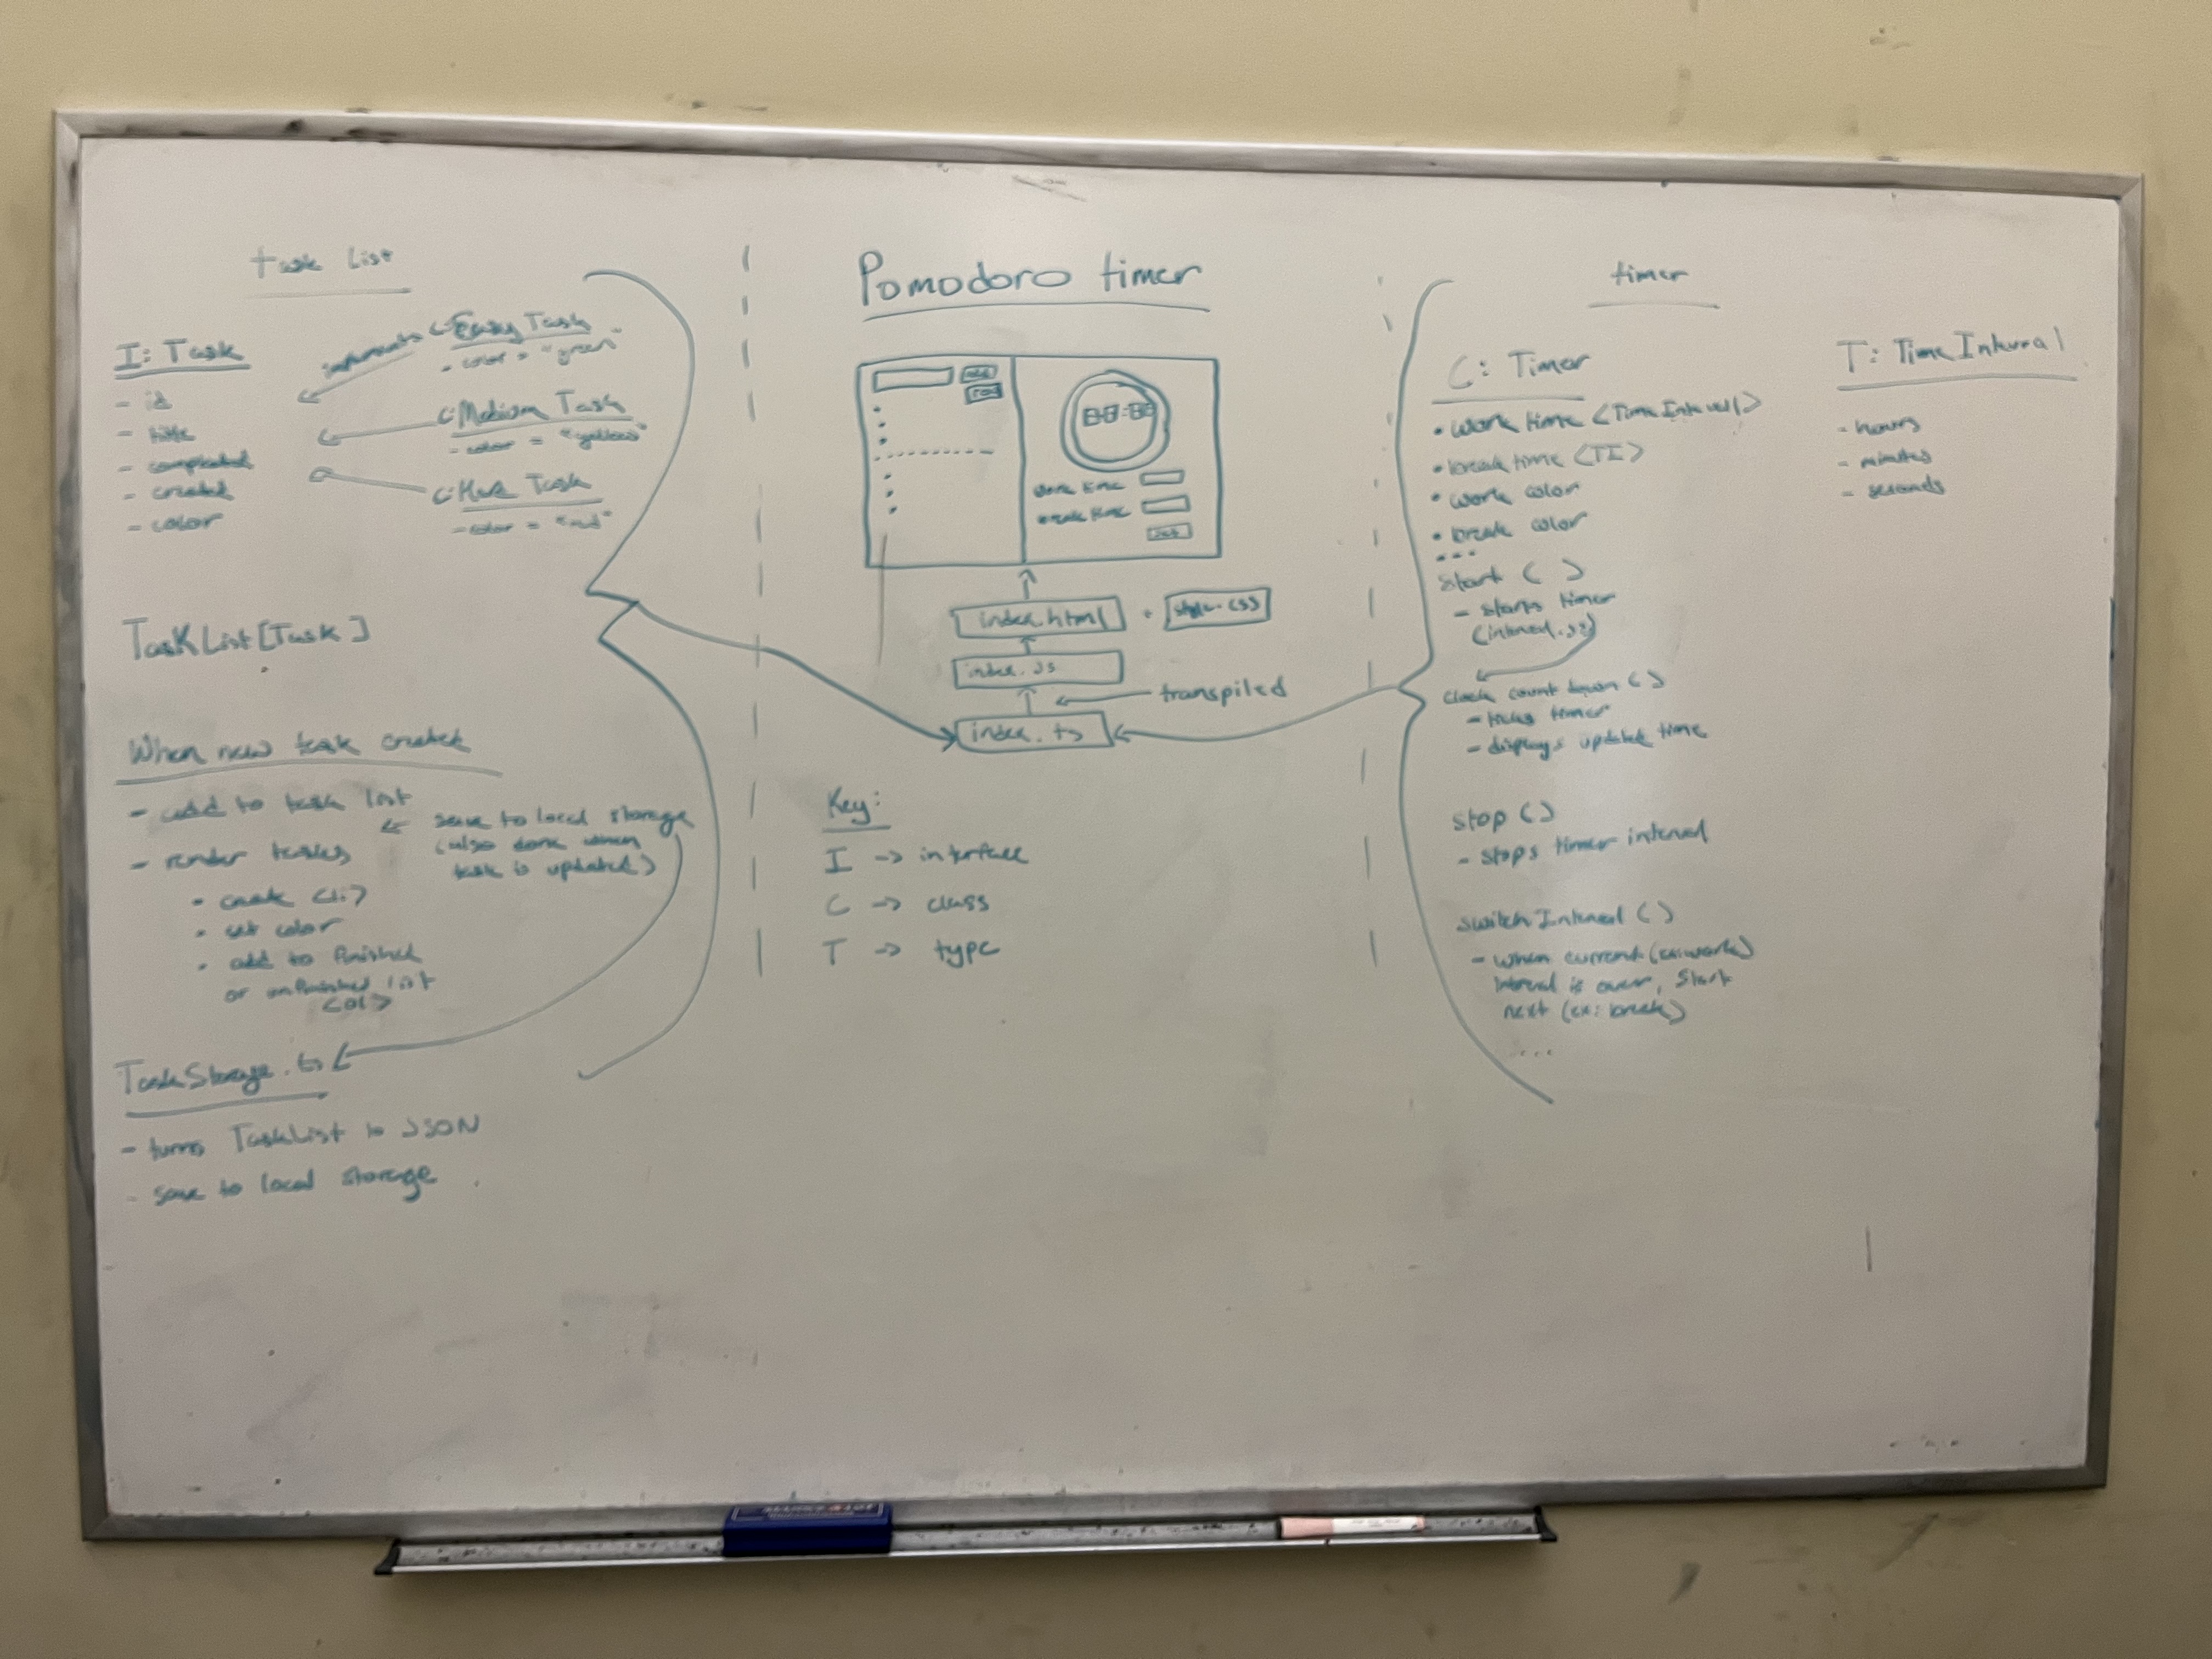 task list
I: Task
- id
- title
- completed
- created
- color
implements
C: Easy Task
- color = "green"
C: Medium Task
- color = "yellow"
C: Hard Task
- color = "red"
TaskList[Task]
When new task created
- add to task list
- render tasks
- create <li>
- set color
- add to finished
or unfinished list
<ol>
save to local storage
(also done when
task is updated)
TaskStorage.ts
- turns TaskList to JSON
- save to local storage
Pomodoro timer
add
88:88
work time
break time
index.html + style.css
index.js
transpiled
index.ts
Key:
I -> interface
C -> class
T -> type
timer
C: Timer
• work time <TimeInterval>
• break time <TI>
• work color
• break color
...
start ( )
- starts timer
clock count down ( )
- ticks timer
- displays updated time
stop ( )
- stops timer interval
switch Interval ( )
- when current (ex: work)
interval is over, start
next (ex: break)
...
T: TimeInterval
- hours
- minutes
- seconds